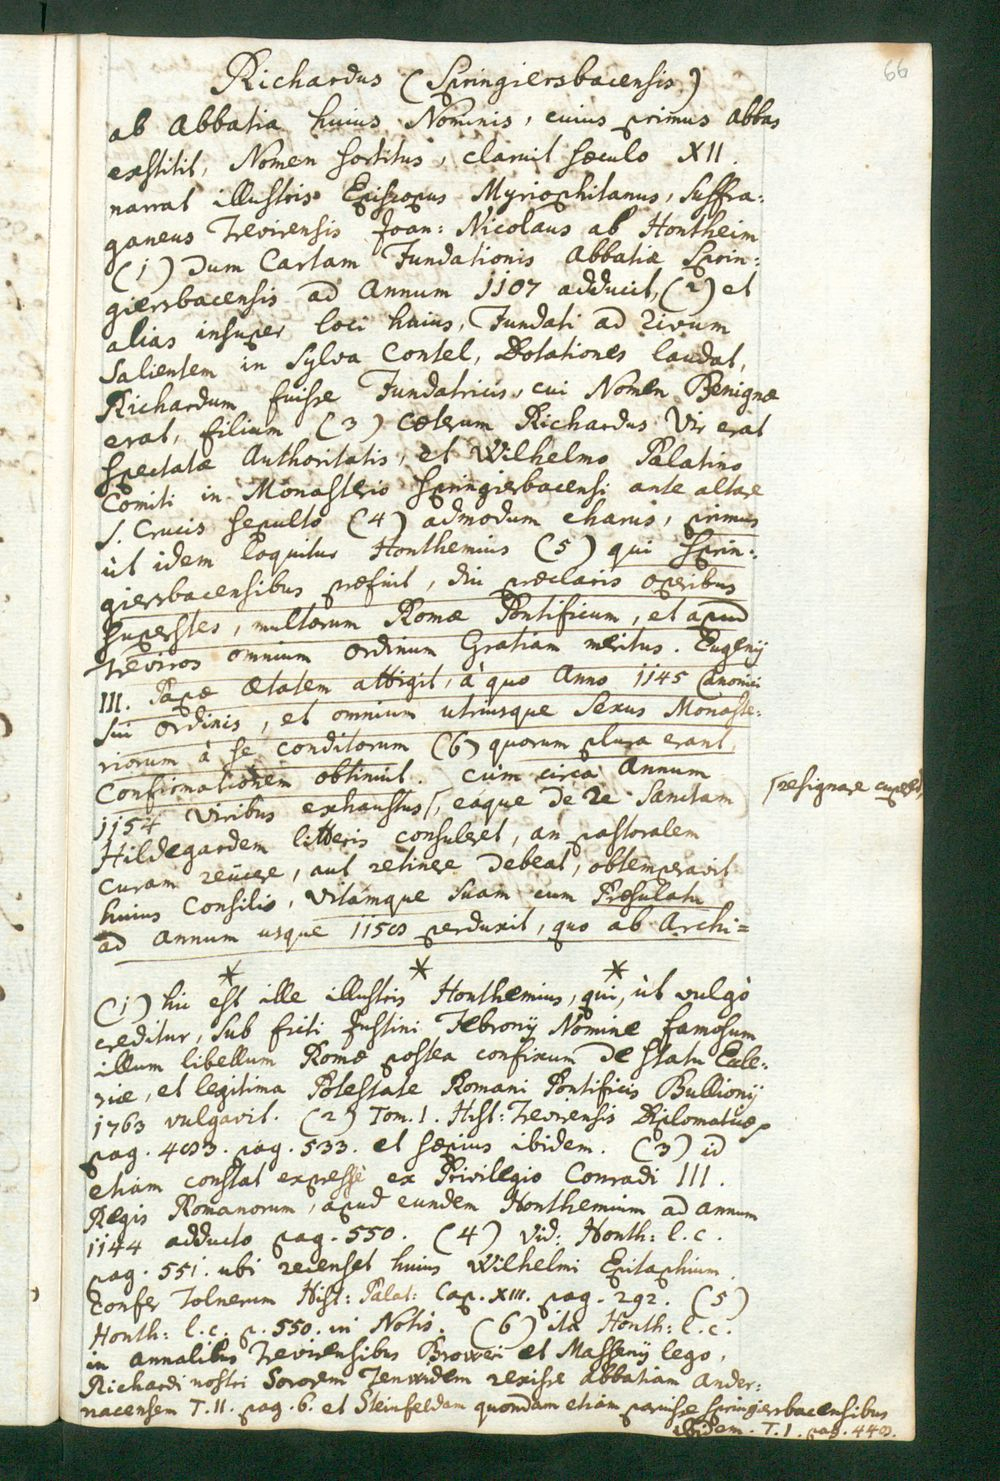 66
Richardus (Springiersbacensis)
ab Abbatia huius Nominis, cuius primus Abbas
exstitit, Nomen sortitus, claruit sæculo XII.
narrat illustris Episcopus Myriophitanus, Suffra:
ganeus Trevirensis Joan: Nicolaus ab Hontheim
(1) dum Cartam Fundationis Abbatiæ Sprin:
giersbacensis ad Annum 1107 adducit, (2) et
alias insuper loci huius, Fundati ad rivum
Salientem in Sylva Contel, Dotationes laudat,
Richardum fuisse Fundatricis, cui Nomen Benignæ
erat, filium (3) cæterum Richardus Vir erat
spectatæ Authoritatis, et Wilhelmo Palatino
Comiti in Monasterio Springierbacensi ante altare
S. Crucis sepulto (4) admodum charus, primus
ut idem loquitur Honthemius (5) qui Sprin:
giersbacensibus præfuit, diu præclaris operibus
superstes, multorum Romæ Pontificum, et apud
Treviros omnium ordinum Gratiam meritus. Eugenij
III. Papæ ætatem attigit, à quo Anno 1145 Canonici
sui ordinis, et omnium utriusque sexus Monaste:
riorum à se conditorum (6) quorum plura erant,
Confirmationem obtinuit. cùm circa Annum
1154 viribus exhaustus ⌈, eaque de re Sanctam
⌈resignare cuperet,
Hildegardem litteris consuleret, an pastoralem
curam reiicere, aut retinere debeat, obtemperavit
huius Consilio, vitamque suam cum Præsulatu
ad Annum usque 1158 perduxit, quo ab Archi=
* * *
(1) hic est ille illustris Honthemius, qui, ùt vulgò
creditur, sub ficti Justini Febronij Nomine famosum
illum libellum Romæ postea confixum de statu Eccle:
siæ, et legitima Potestate Romani Pontificis Bullionij
1763 vulgavit. (2) Tom. 1. Hist: Trevirensis Diplomaticæ
pag. 483. pag. 533. et sæpius ibidem. (3) id
etiam constat expressè ex Privilegio Conradi III.
Regis Romanorum, apud eundem Honthemium ad annum
1144 adducto pag. 550. (4) vid: Honth: l. c.
pag. 551. ubi recenset huius Wilhelmi Epitaphium.
Confer Tolnerum Hist: Palat: Cap. XIII. pag. 292. (5)
Honth: l. c. p. 550. in Notis. (6) ita Honth: l. c.
in annalibus Trevirensibus Broweri et Massenij lego,
Richardi nostri Sororem Tenxwidem rexisse abbatiam Ander:
nacensem T. II. pag. 6. et Steinfeldam quondam etiam paruisse Springiersbacensibus
ibidem. T. I. pag. 448.